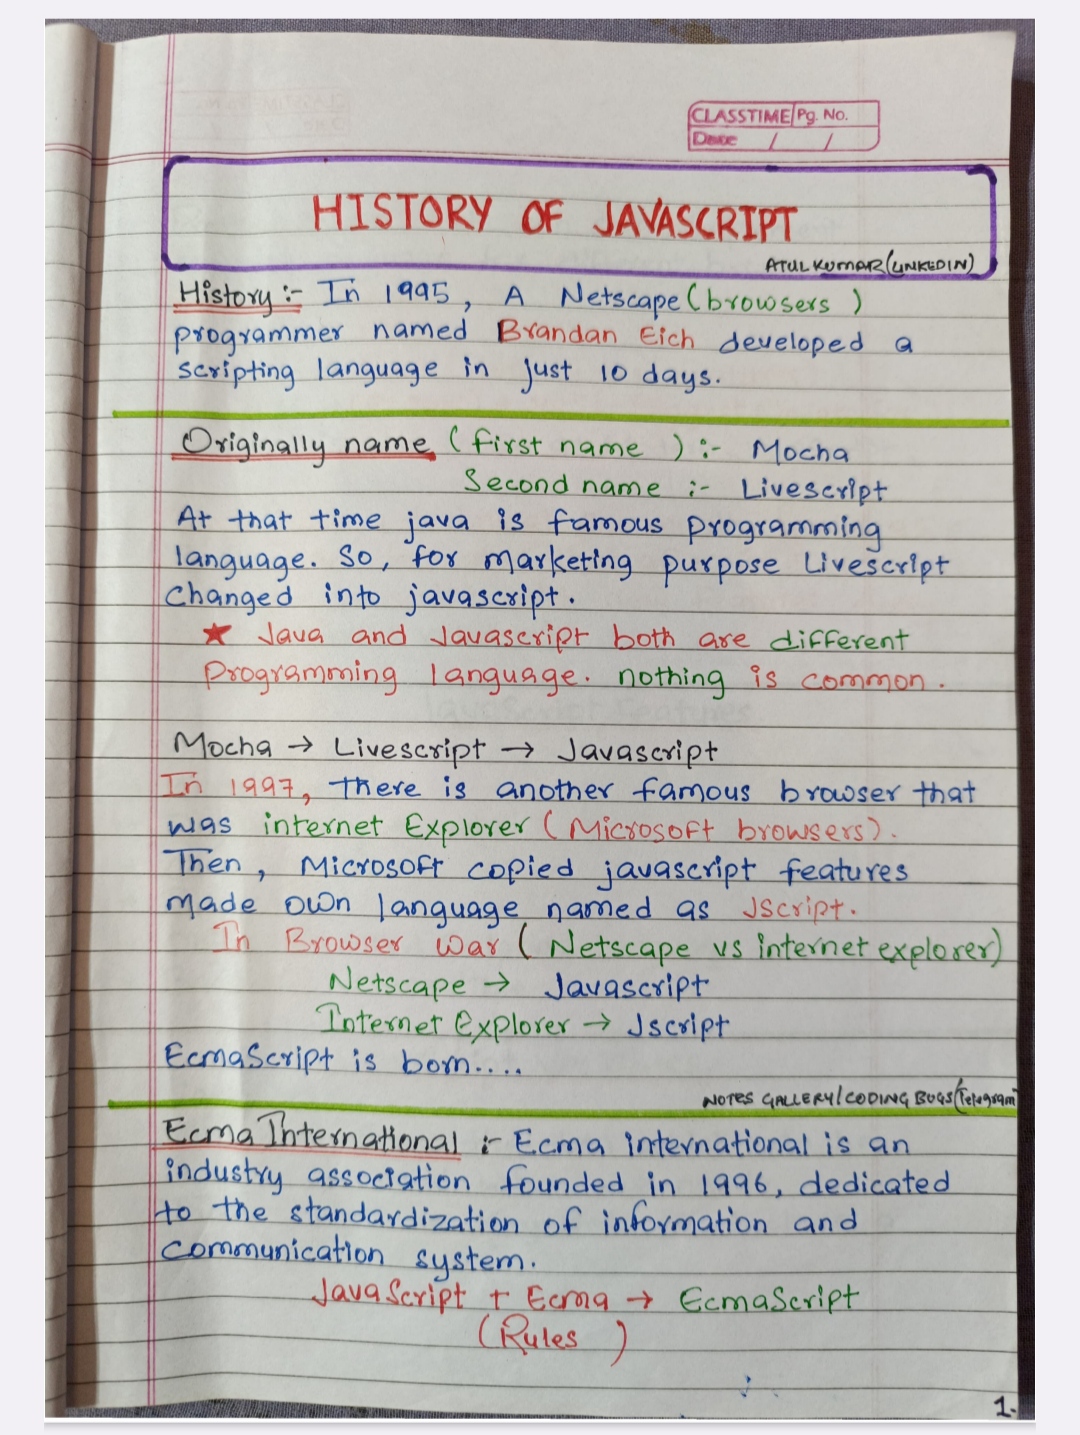 CLASSTIME Pg. No.
Date / /
HISTORY OF JAVASCRIPT
ATUL KUMAR (LINKEDIN)
History :- In 1995, A Netscape (browsers)
programmer named Brandan Eich developed a
scripting language in just 10 days.
Originally name (first name) :- Mocha
Second name :- Livescript
At that time java is famous programming
language. So, for marketing purpose Livescript
changed into javascript.
★ Java and Javascript both are different
Programming language. nothing is common.
Mocha → Livescript → Javascript
In 1997, there is another famous browser that
was internet Explorer (Microsoft browsers).
Then, Microsoft copied javascript features
made own language named as Jscript.
In Browser war (Netscape vs internet explorer)
Netscape → Javascript
Internet Explorer → Jscript
EcmaScript is born....
NOTES GALLERY/CODING BUGS (Telegram)
Ecma International :- Ecma international is an
industry association founded in 1996, dedicated
to the standardization of information and
communication system.
JavaScript + Ecma → EcmaScript
(Rules)
1.